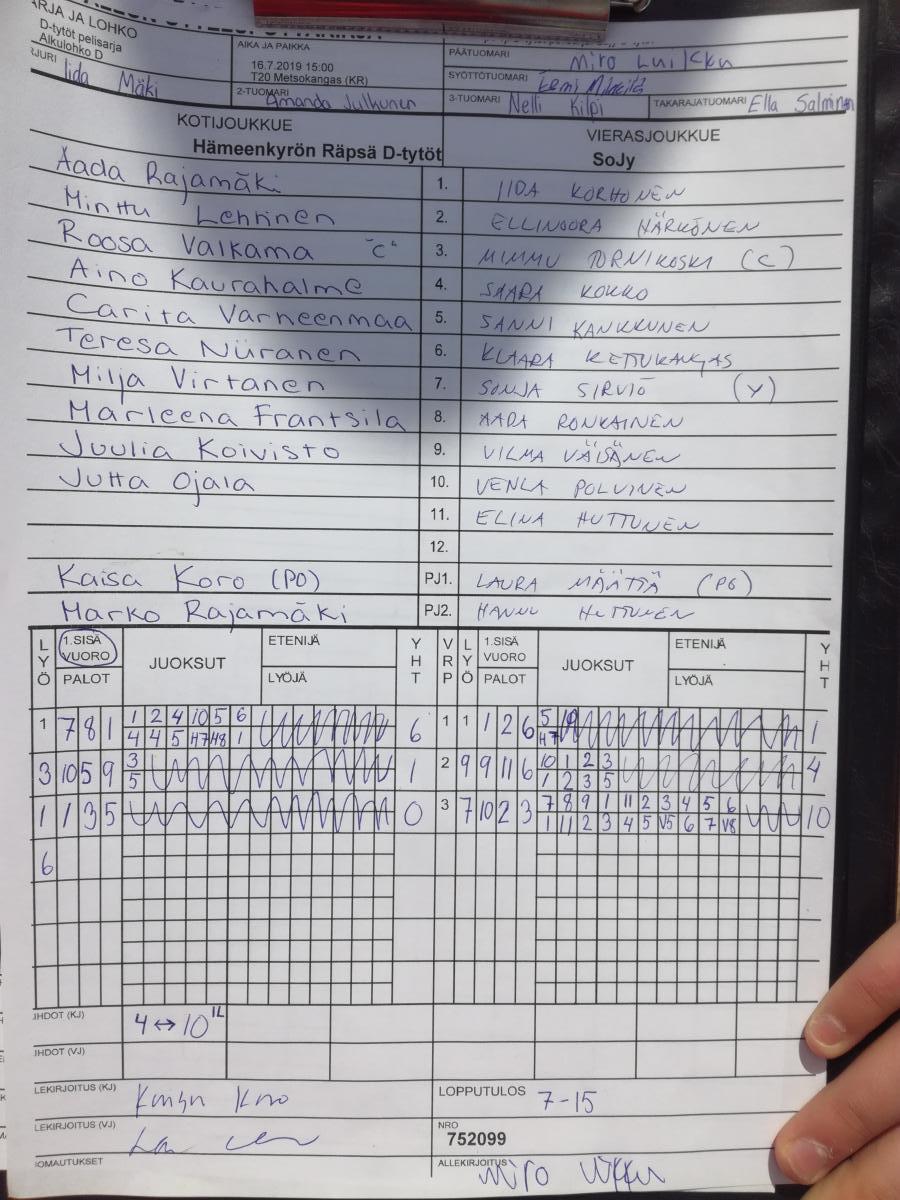 ARJA JA LOHKO
D-tytöt pelisarja
Alkulohko D
AIKA JA PAIKKA
16.7.2019 15:00
T20 Metsokangas (KR)
PÄÄTUOMARI Miro Luikku
SYÖTTÖTUOMARI
RJURI Iida Mäki
2-TUOMARI Amanda Julkunen
3-TUOMARI Nelli Kilpi
TAKARAJATUOMARI Ella Salminen
KOTIJOUKKUE VIERASJOUKKUE
Hämeenkyrön Räpsä D-tytöt SoJy
Aada Rajamäki 1. IIDA KORHONEN
Minttu Lehtinen 2. ELLINOORA HÄRKÖNEN
Roosa Valkama "C" 3. MIMMU TORNIKOSKI (C)
Aino Kaurahalme 4. SAARA KOKKO
Carita Varheenmaa 5. SANNI KANKKUNEN
Teresa Niiranen 6. KLAARA KETTUKANGAS
Milja Virtanen 7. SONJA SIRVIÖ (V)
Marleena Frantsila 8. AADA RONKAINEN
Juulia Koivisto 9. VILMA VÄISÄNEN
Jutta Ojala 10. VENLA POLVINEN
11. ELINA HUTTUNEN
12.
Kaisa Koro (PO) PJ1. LAURA MÄÄTTÄ (PG)
Marko Rajamäki PJ2. HANNU HUTTUNEN
LYÖ 1.SISÄ VUORO PALOT JUOKSUT ETENIJÄ LYÖJÄ YHT VRP LYÖ 1.SISÄ VUORO PALOT JUOKSUT ETENIJÄ LYÖJÄ YHT
1 7 8 1 1 2 4 10 5 6 6 1 1 1 2 6 5 1
4 4 5 H7 H8 1 H7
3 10 5 9 3 1 2 9 9 11 6 10 1 2 3 4
5 1 2 3 5
1 1 3 5 0 3 7 10 2 3 7 8 9 1 11 2 3 4 5 6 10
1 11 2 3 4 5 V5 6 7 V8
6
IHDOT (KJ) 4↔10 IL
IHDOT (VJ)
LEKIRJOITUS (KJ)
LOPPUTULOS 7-15
LEKIRJOITUS (VJ)
NRO
752099
OMAUTUKSET
ALLEKIRJOITUS Miro